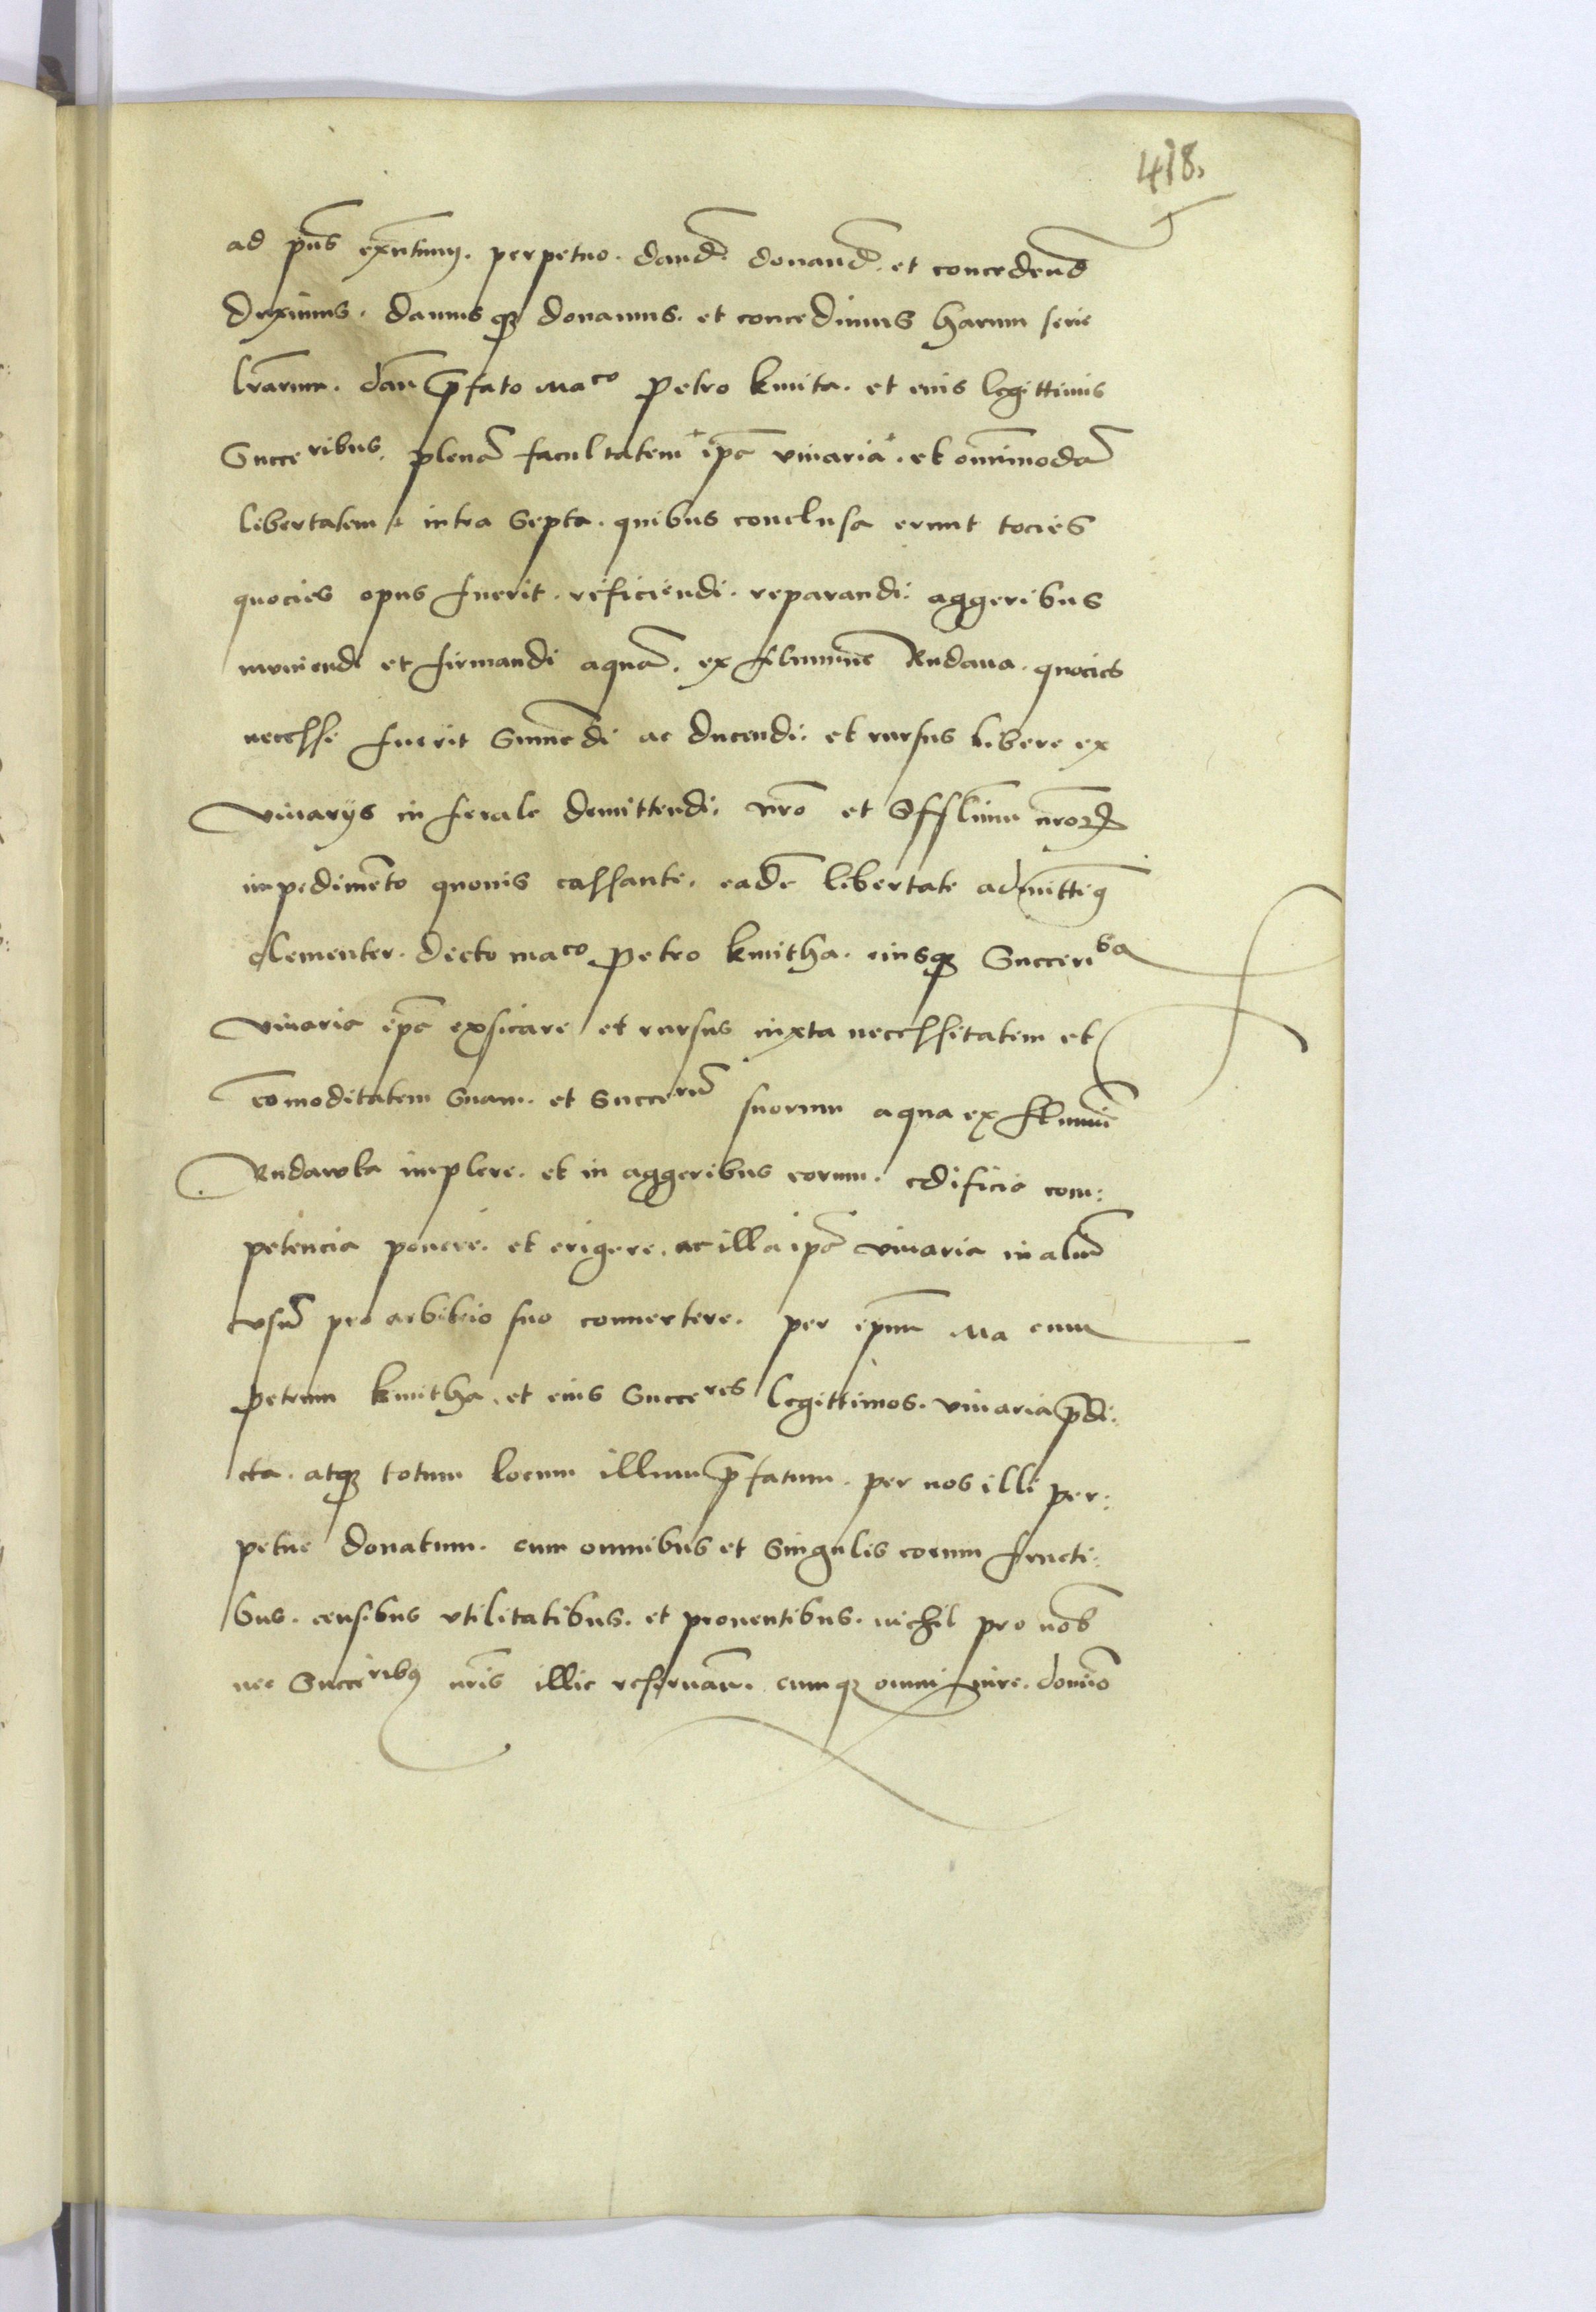 418.
ad pn̄s exn̄tium. perpetuo. dand̄. donand̄. et concedend̄
duximus. damusqꝫ donamus. et concedimus harum serie
l̄rarum. dan̄ p̄fato Ma^co Petro kmita. et eius legittimis
Succe^ribus. plenā facultatem + ip̄a viuaria +. et om̄nimodā
libertatem + intra Septa. quibus conclusa erunt tocies
quocies opus fuerit. reficiendi. reparandi. aggeribus
muniendi et firmandi aquā. ex flumine Rudaua. quocies
necessse fuerit Sumēdi ac ducendi. et rursus libere ex
viuarijs in demittendi. nr̄o et nr̄oꝝ
impedimēto quouis cassante. eadē libertate admitten̄
clementer. dicto ma^co Petro kmitha. eiusqꝫ Succeri^ba
viuaria ip̄a exsicare et rursus iuxta necessitatem et
cōmoditatem Suam. et Succe^rū suorum aqua ex flumī̄
Rudawka implere. et in aggeribus eorum. edificia com:
petencia ponere. et erigere. ac illa ip̄a viuaria in aliū
vsū pro arbitrio suo conuertere. per ip̄um Ma cum
petrum kmitha. et eius Succe^res legittimos. viuaria p̄di:
cta. atqꝫ totum locum illum p̄fatum. per nos illi per:
petue donatum. cum omnibus et Singulis eorum fructi:
bus. censibus vtilitatibus. et prouentibus. nichil pro nob̄
nec Succe^ribꝰ nr̄is illic reseruan̄. cumqꝫ omni iure. domīo